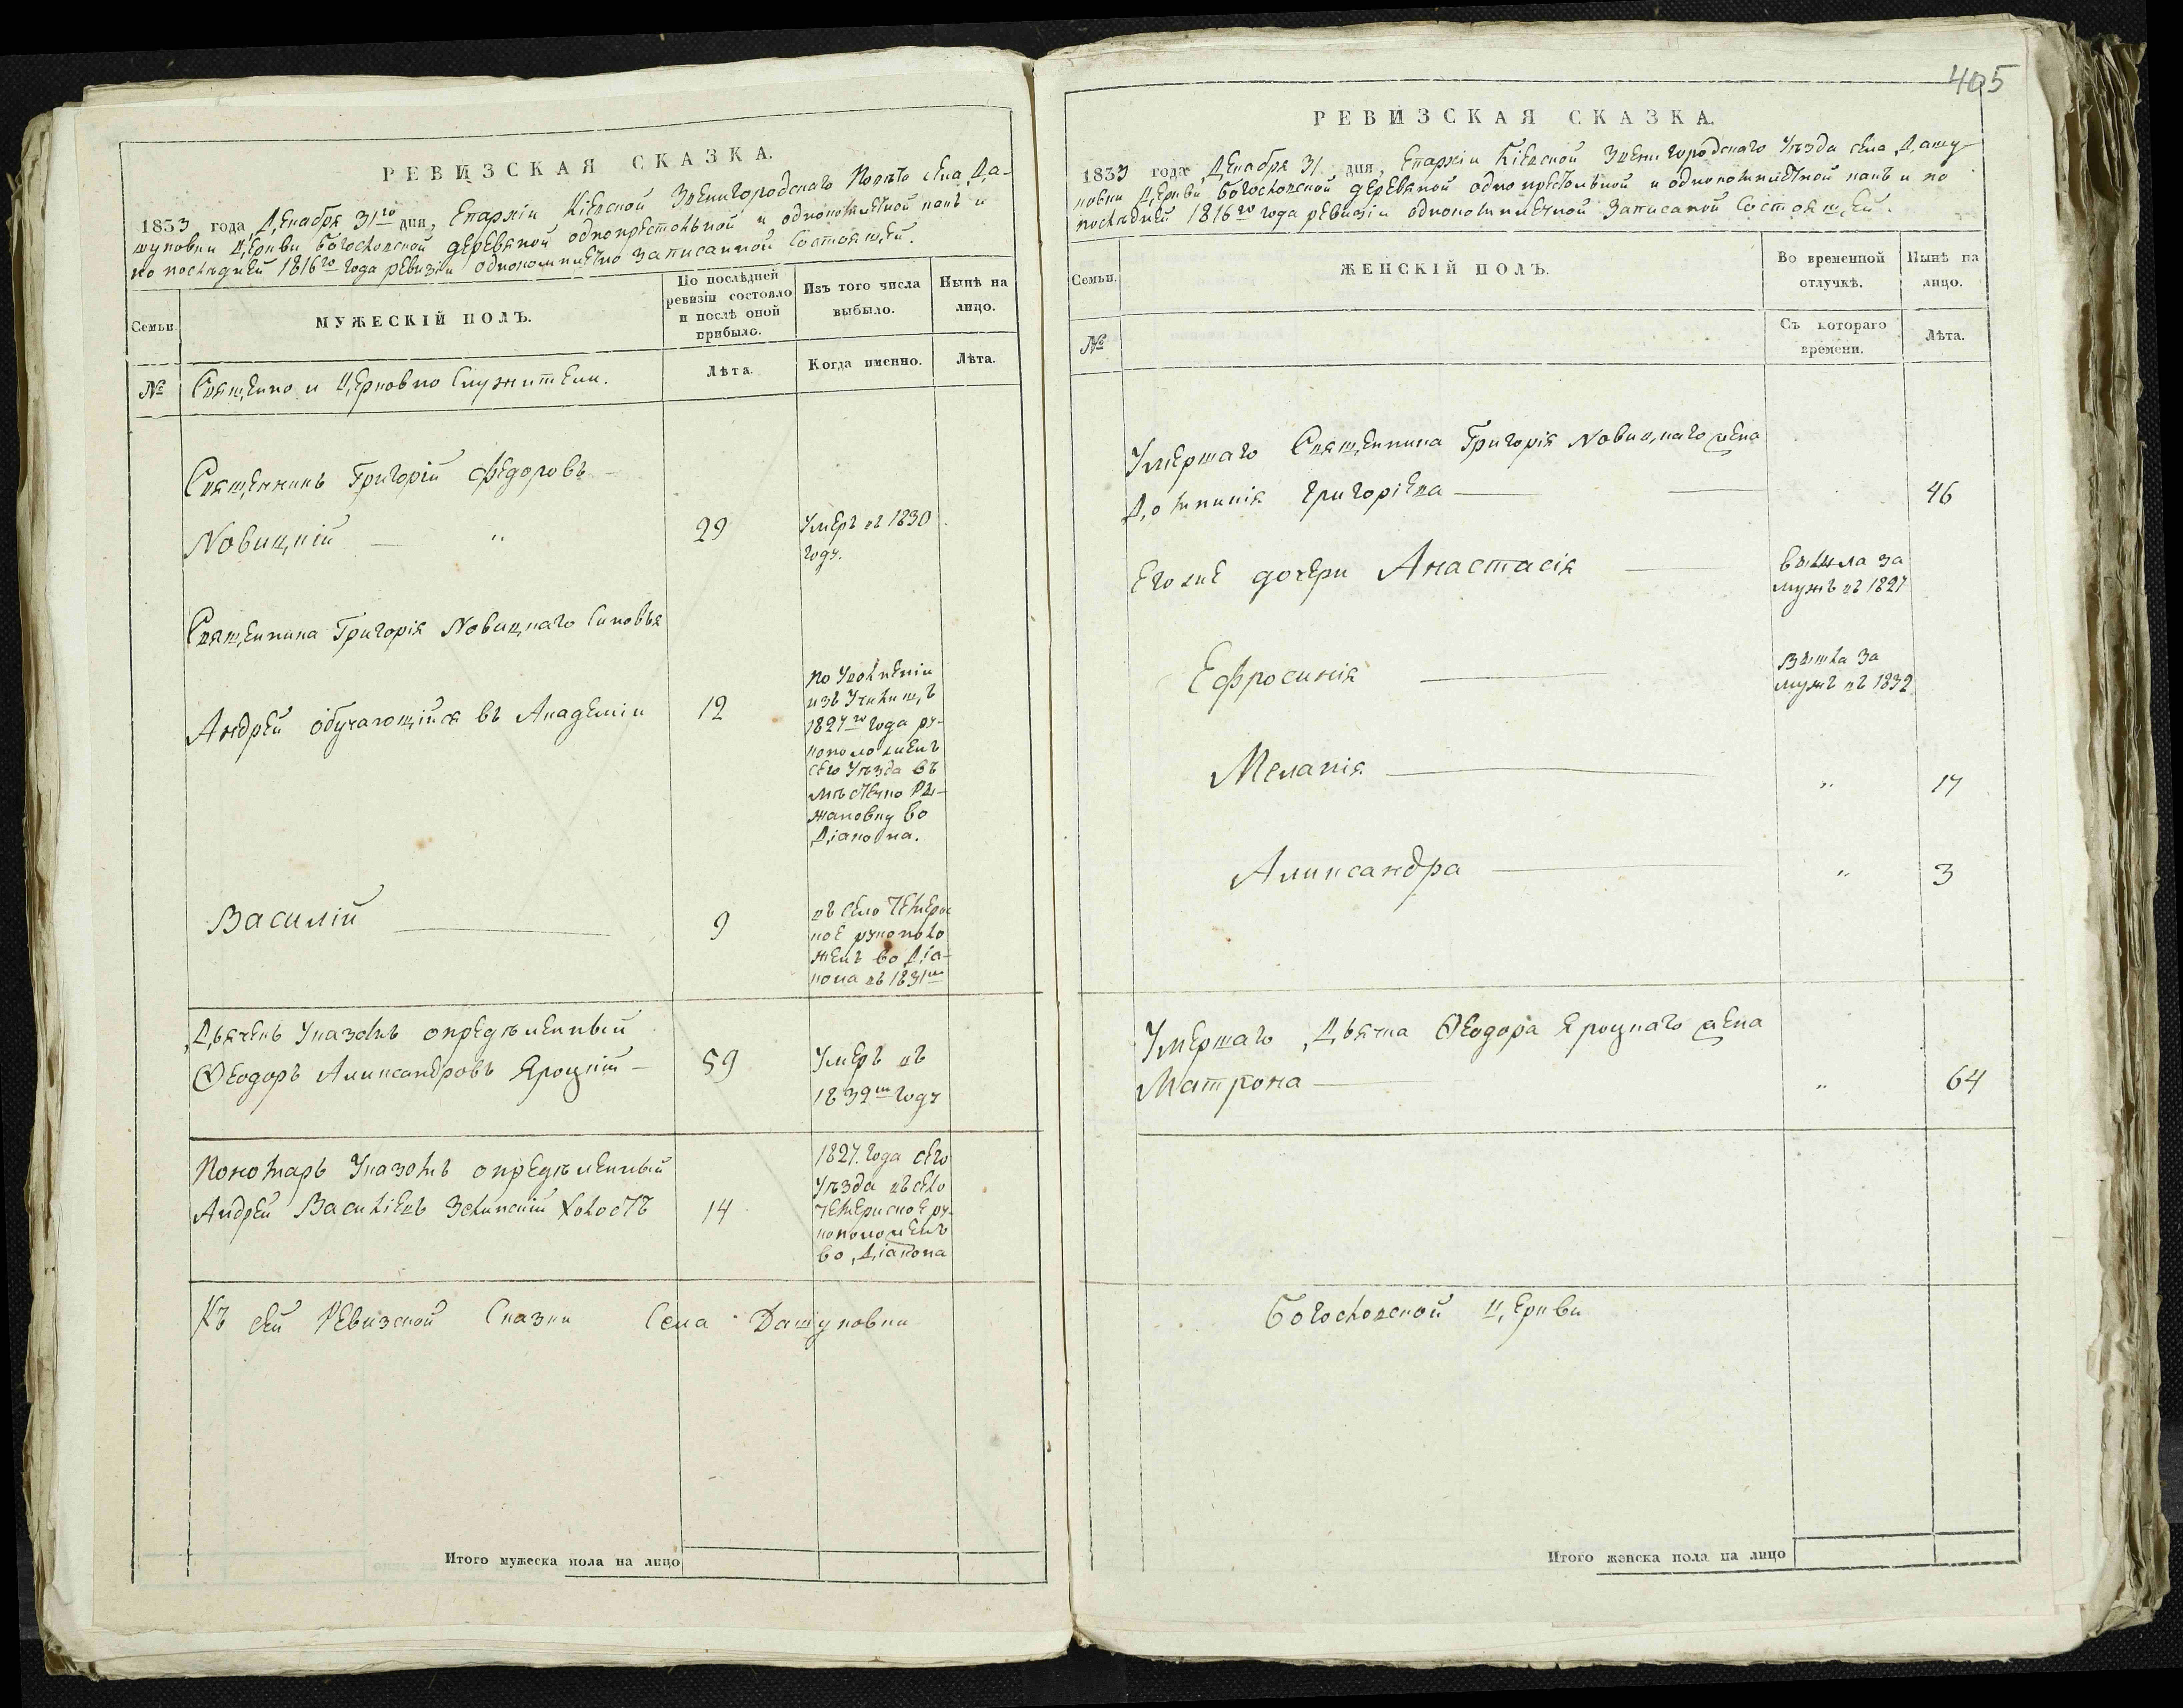 РЕВИЗСКАЯ СКАЗКА.
1833 года Декабря 31го дня, Епархіи Кіевской Звенигородскаго Повѣта села Да-
шуковки Церкви богословской деревяной однопрестольной и однокомплетной какъ и
по последней 1816го года ревизіи однокомплетно записанной состоящей.
Семьи.
МУЖЕСКІЙ ПОЛЪ.
По послѣдней
ревизіи состояло
и послѣ оной
прибыло.
Изъ того числа
выбыло.
Нынѣ на
лицо.
№
Священно и Церковно служители.
Лѣта.
Когда именно.
Лѣта.
Священникъ Григорій Федоровъ
Новицкій
29
Умеръ въ 1830
году.
Священника Григорія Новицкаго сыновья
Андрей обучающійся въ Академіи
12
По уволненіи
изъ Училищъ
1827го года ру-
коположенъ
сего Уѣзда въ
мѣстечко Ры-
жановку во
Діакона.
Василій
9
въ село
ное рукополо
женъ во Діа-
кона въ 1831м
Дьячекъ Указомъ опредѣленный
Ѳеодоръ Александровъ Яроцкій
59
Умеръ въ
1832м году
Пономарь Указомъ опредѣленный
Андрей Васильевъ холостъ
14
1827. года сего
Уѣзда въ село
ру-
коположенъ
во Діакона
Къ сей Ревизской Сказки Села Дашуковки
Итого мужеска пола на лицо
405
РЕВИЗСКАЯ СКАЗКА.
1833 года Декабря 31 дня, Епархіи Кіевской Звенигородскаго Уѣзда села Дашу-
ковки Церкви богословской деревяной однопрестольной и однокомплетной какъ и по
последней 1816го года ревизіи однокомплетной записаной состоящей.
Семьи.
ЖЕНСКІЙ ПОЛЪ.
Во временной
отлучкѣ.
Нынѣ на
лицо.
№
Съ котораго
времени.
Лѣта.
Умершаго Священника Григорія Новицкаго жена
Домникія Григоріева
46
Его же дочери Анастасія
вышла за
мужъ въ 1827
Ефросинія
Вышла за
мужъ въ 1832
Меланія
"
17
Александра
"
3
Умершаго Дьячка Ѳеодора Яроцкаго жена
Матрона
"
64
Богословской Церкви
Итого женска пола на лицо